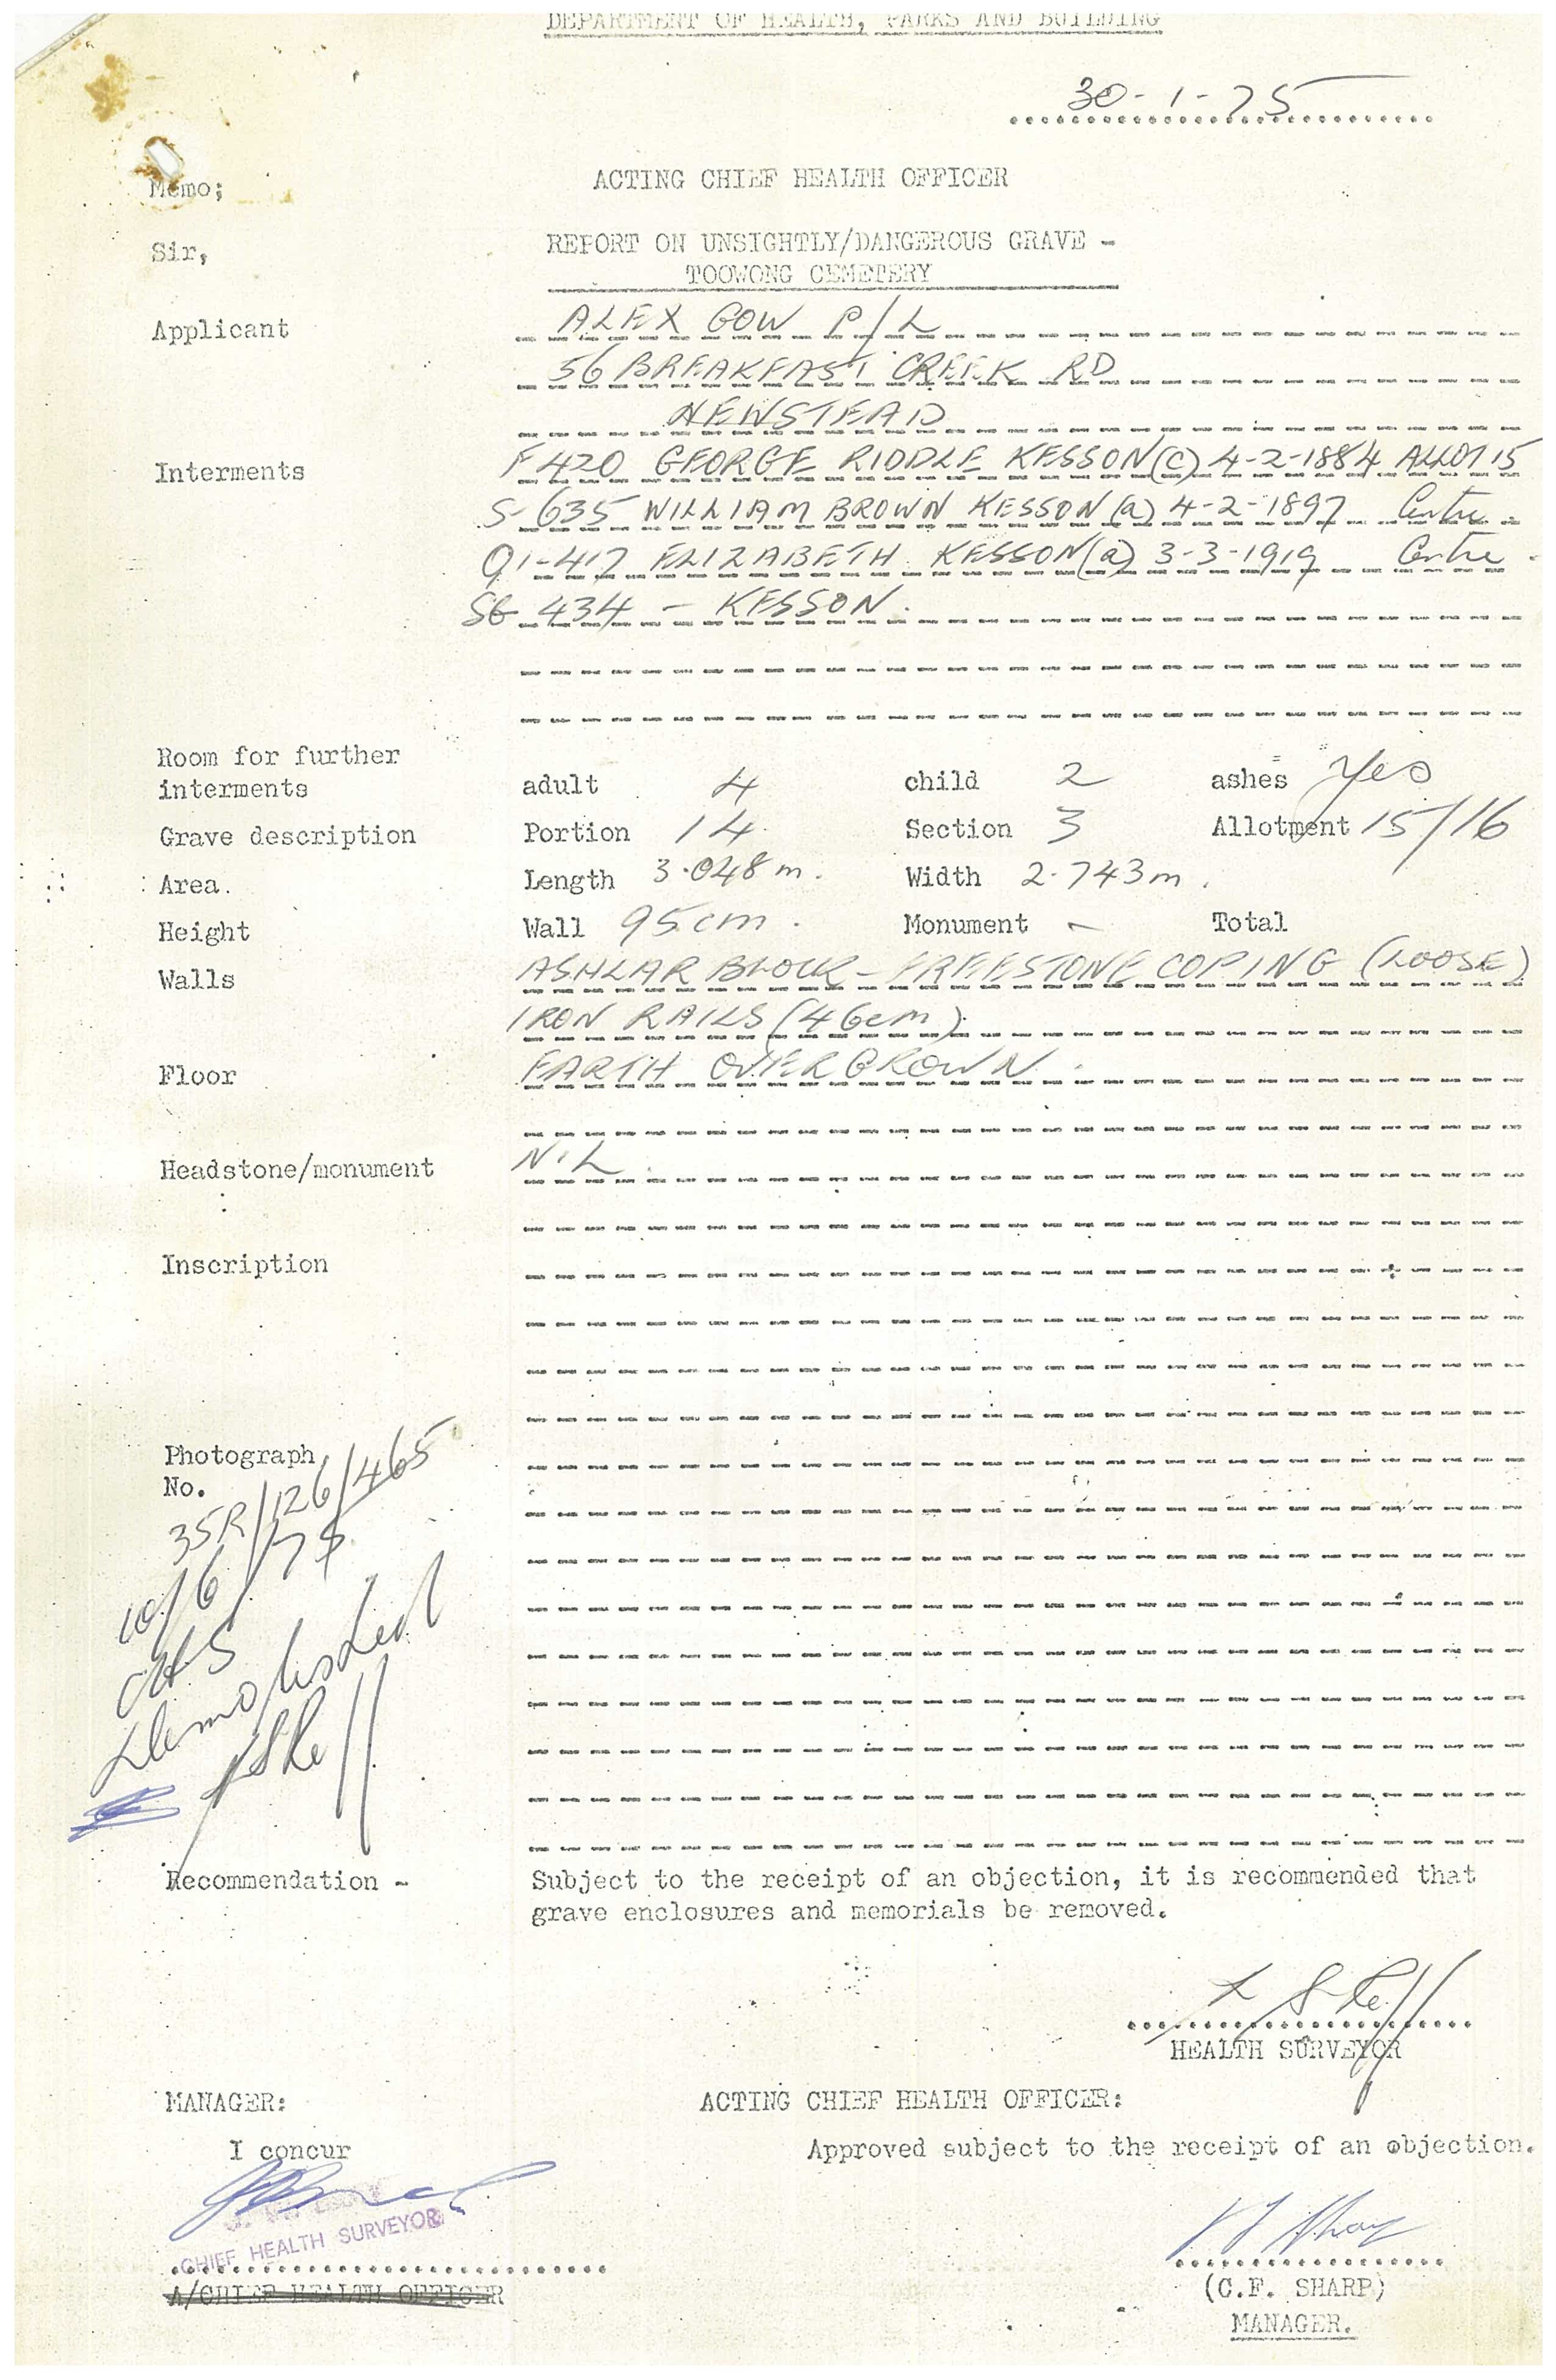 DEPARTMENT OF HEALTH, PARKS AND BUILDING
30-1-75
Memo; ACTING CHIEF HEALTH OFFICER
Sir, REPORT ON UNSIGHTLY/DANGEROUS GRAVE -
TOOWONG CEMETERY
Applicant ALEX GOW P/L
56 BREAKFAST CREEK RD
NEWSTEAD
Interments F 420 GEORGE RIDDLE KESSON (c) 4-2-1884 ALLOT 15
S-635 WILLIAM BROWN KESSON (a) 4-2-1897 Centre.
Q1-417 ELIZABETH KESSON (a) 3-3-1919 Centre.
SG 434 - KESSON.
Room for further
interments adult 4 child 2 ashes Yes
Grave description Portion 14. Section 3 Allotment 15/16
Area. Length 3.048 m. Width 2.743m.
Height Wall 95cm. Monument - Total
Walls ASHLAR BLOCK - FREESTONE COPING (LOOSE)
IRON RAILS (46cm).
Floor EARTH OVERGROWN.
Headstone/monument NIL.
Inscription
Photograph
No.
35R/126/465
10/6/75
CHS
Demolished
Recommendation - Subject to the receipt of an objection, it is recommended that
grave enclosures and memorials be removed.
HEALTH SURVEYOR
MANAGER: ACTING CHIEF HEALTH OFFICER:
I concur Approved subject to the receipt of an objection.
CHIEF HEALTH SURVEYOR
A/CHIEF HEALTH OFFICER
(C.F. SHARP)
MANAGER.